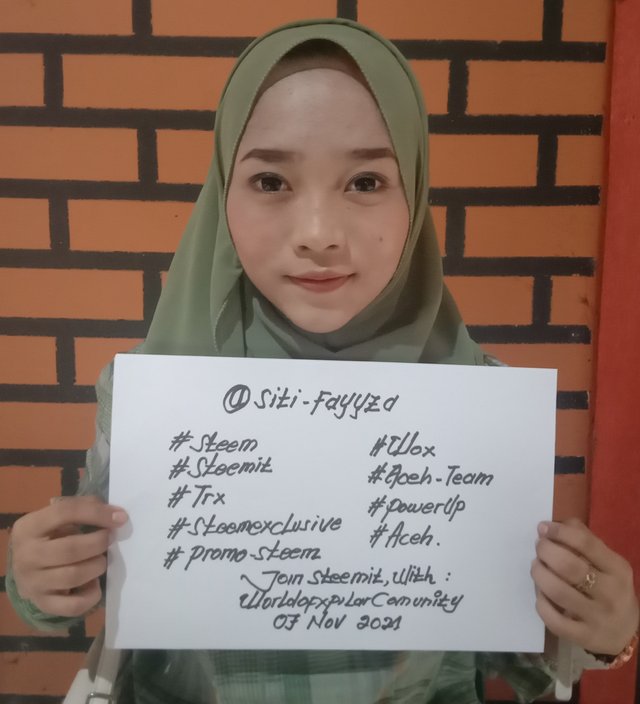 @siti-fayyza
#Steem
#Steemit
#Trx
#Steemexclusive
#promo-steem
#Wox
#Aceh-Team
#powerUp
#Aceh.
Join Steemit, With :
WorldofxpilarComunity
07 Nov 2021